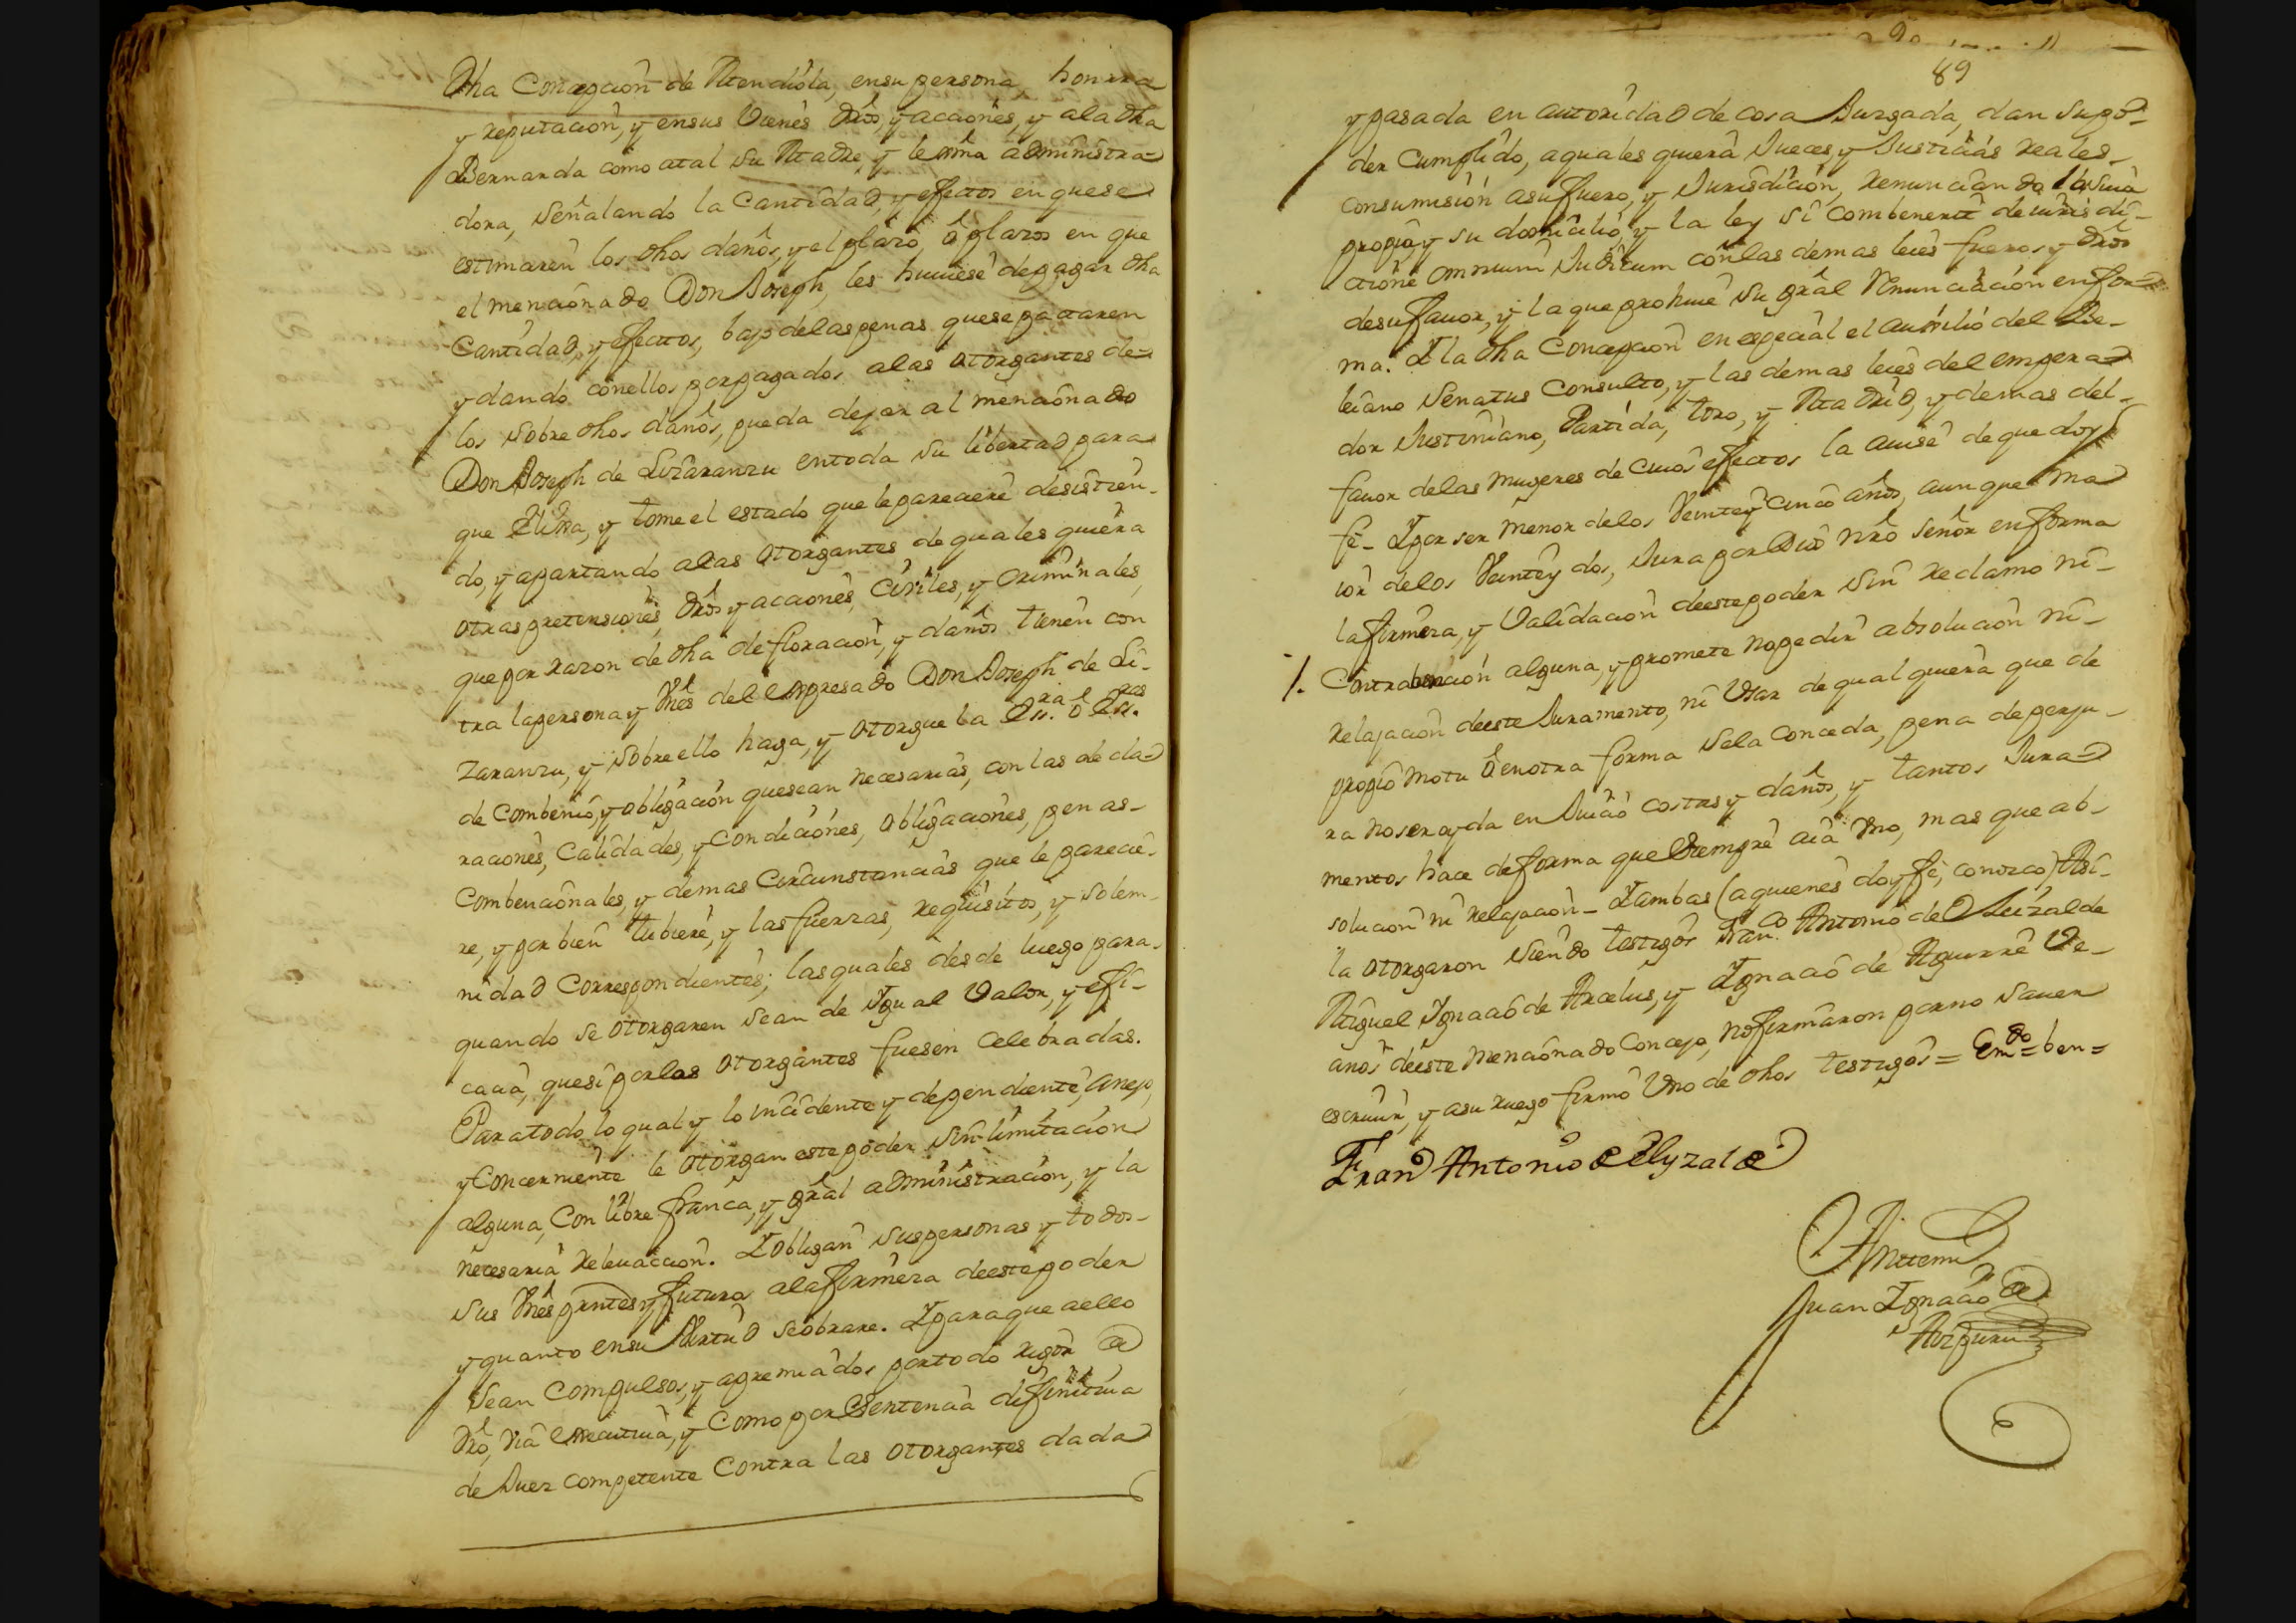 Dha Concepcion de Mendiola, en su persona, honrra
y reputacion, y en sus Vienes dros, y acciones, y ala dha
Bernarda como atal su Madre, y lexma administra-
dora, señalando la Cantidad, y efectos en que se
estimaren los dhos daños, y el plazo, ô plazos en que
el mencionado Don Joseph, les huuiese de pagar dha
Cantidad, y efectos, bajo delas penas que se pactaren
y dando con ellos por pagados alas otorgantes de
los sobre dhos daños, pueda dejar al mencionado
Don Joseph de Lizaranzu en toda su libertad para
que elixa, y tome el estado que le pareciere desistien-
do, y apartando alas otorgantes de quales quiera
otras pretensiones, dros y acciones, Civiles, y Criminales,
que por razon de dha defloracion, y daños tienen con
tra la persona y Vnes del Expresado Don Joseph de Li-
zaranzu, y sobre ello haga, y otorgue la Esra. ô Esras.
de Combenio, y obligacion que sean necesarias, con las decla-
raciones, Calidades, y Condiciones, obligaciones, penas-
Combencionales, y demas Circunstancias que le parecie-
re, y por bien tubiere, y las fuerzas, requisitos, y solem-
nidad Correspondientes; las quales desde luego para-
quando se otorgaren sean de Igual Valor, y efi-
cacia, que si por las otorgantes fuesen Celebradas.
Para todo lo qual y lo incidente y dependiente, anejo,
y Concerniente le otorgan este poder sin limitacion
alguna, Con libre franca, y gral administracion, y la
necesaria releuaccion. Y obligan sus personas y todos-
sus Vnes prntes y futuros ala firmeza deeste poder
y quanto en su Virtud se obrare. Y para que a ello
sean Compulsos, y apremiados por todo rigor de
dro, via executiua, y Como por Sentencia difinitiua
de Juez competente Contra las otorgantes dada
89
y pasada en autoridad de cosa Juzgada, dan su po-
der Cumplido, a quales quiera Jueces, y Justicias reales-
con sumision a su fuero, y Jurisdicion, renunciando la suia
propia, y su domicilio, y la ley si combenerit de iuris di-
ctione omnium Judicum con las demas leies fueros y dros
de su fauor, y la que prohiue su gral renunciacion en for-
ma. Y la dha Concepcion en especial el auxilio del Be-
leiano Senatus Consulto, y las demas leies del empera-
dor Justiniano, Partida, toro, y Madrid, y demas del-
fauor delas Mugeres de Cuios efectos la auise de que doy
fe- Y por ser menor delos Veinte y Cinco años, aunque ma
ior delos Veinte y dos, Jura por Dios nro Señor en forma
la firmeza, y Validacion deeste poder sin reclamo ni-
/. Contrabencion alguna, y promete no pedir absolucion ni-
relajacion deeste Juramento, ni Vsar de qual quiera que de
propio motu ô en otra forma se la Conceda, pena de perju-
ra no ser oyda en Juicio costas y daños, y tantos Jura-
mentos hace de forma que siempre aia Vno, mas que ab-
solucion ni relajacion- Y ambas (a quienes doy fe, conozco) Asi-
la otorgaron siendo testigos Franco. Antonio de Eleizalde
Miguel Ignacio de Arcelus, y Ignacio de Aguirre Ve-
anos deeste mencionado Concejo, no firmaron por no sauer
escriuir, y a su ruego firmo Vno de dhos testigos = Emdo = ben =
Fran Antonio de Elyzalde
Antemi
Juan Ignacio de
Aizpuru